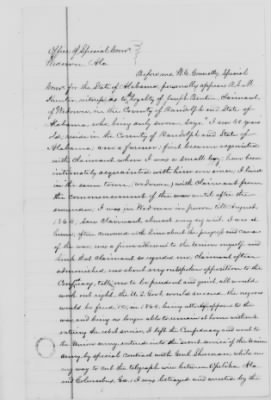 Office of Special Com'r
Wedowee Ala
Before me W. H. Connelly Special
Com'r for the State of Alabama personally appears
Hunter, witness as to loyalty of Joseph Benton claimant
of Wedowee, in the County of Randolph and State of
Alabama, who being duly sworn, says: I am years
old, reside in the County of Randolph and State of
Alabama, am a farmer; first became acquainted
with claimant when I was a small boy, have been
intimately acquainted with him ever since, I lived
in the same town (Wedowee) with claimant from
the commencement of the war until after the
surrender, I was in Wedowee in person till August,
186 , saw claimant almost every day until I was at
home, often conversed with him about the progress and cause
of the war, was a firm adherent to the Union myself, and
think that claimant so regarded me, claimant often
admonished me about my outspoken opposition to the
Confederacy, telling me to be prudent and quiet, all would
work out right, the U.S. Govt would succeed, the negroes
would be freed, in 186 , being still opposed to the
war and being no longer able to remain at home without
entering the rebel service, I left the Confederacy and went to
the Union army, entered into the secret service of the Union
Army, by special contract with Genl Sherman, while on
my way to cut the telegraph wire between Opelika Ala
and Columbus, Ga; I was betrayed and arrested by the